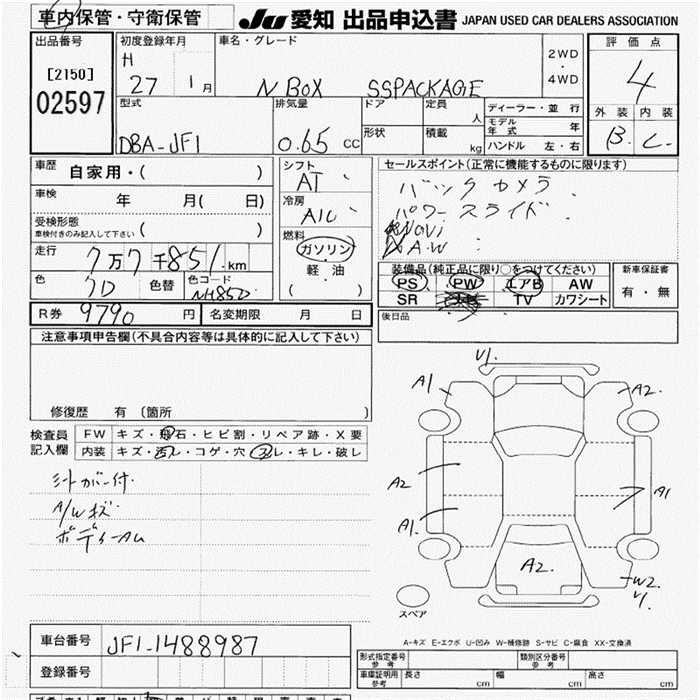 車内保管・守衛保管 JU 愛知 出品申込書 JAPAN USED CAR DEALERS ASSOCIATION
出品番号 初度登録年月 車名・グレード 2WD・4WD 評価点
[2150] H 27 1月 N BOX SSPACKAGE 4
02597 外装 内装
型式 排気量 ドア 定員 人 ディーラー・並行
DBA-JF1 0.65 CC 形状 積載 kg モデル年式 年 B C
ハンドル 左・右
車歴 自家用・( ) シフト AT セールスポイント(正常に機能するものに限ります)
車検 年 月( 日) 冷房 A/C バックカメラ
受検形態 車検付きのみ記入して下さい ( ) 燃料 パワースライド
走行 7万7千851km ガソリン・軽油 ( ) Navi
A.W
色 色替 色コード NH85D 装備品(純正品に限り○をつけてください) 新車保証書
PS PW エアB AW 有・無
SR TV カワシート
R券 9790円 名変期限 月 日 後日品
注意事項申告欄(不具合内容等は具体的に記入して下さい)
修復歴 有(箇所 )
検査員記入欄 FW キズ・飛石・ヒビ割・リペア跡・X要
内装 キズ・汚レ・コゲ・穴・スレ・キレ・破レ
シートカバー付
A/Wキズ
V1.
A1 A2.
A2 A1
A1.
A2.
W2.
V1.
スペア
A-キズ E-エクボ U-凹み W-補修跡 S-サビ C-腐食 XX-交換済
車台番号 JF1-1488987
登録番号
形式指定番号 参考 類別区分番号 参考
車庫証明用 参考 長さ cm 幅 cm 高さ cm